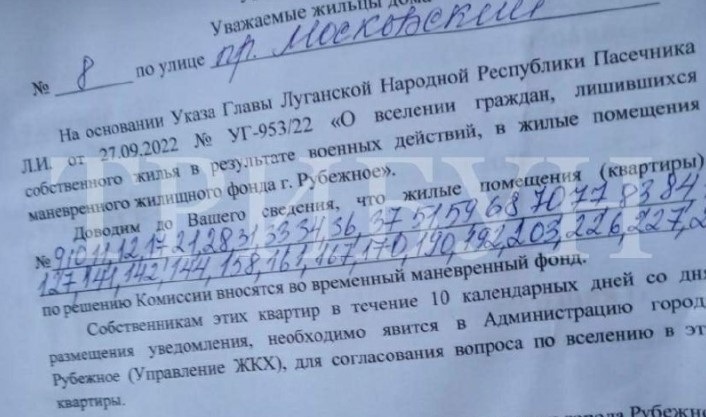 Уважаемые жильцы дома
№ 8 по улице пр. Московский
На основании Указа Главы Луганской Народной Республики Пасечника
Л.И. от 27.09.2022 № УГ-953/22 «О вселении граждан, лишившихся
собственного жилья в результате военных действий, в жилые помещения
маневренного жилищного фонда г. Рубежное».
Доводим до Вашего сведения, что жилые помещения (квартиры)
№ 9,10,11,12,17,21,28,31,33,34,36,37,51,59,68,70,77,83,84,
127,141,142,144,158,161,167,170,190,192,203,226,227,
по решению Комиссии вносятся во временный маневренный фонд.
Собственникам этих квартир в течение 10 календарных дней со дня
размещения уведомления, необходимо явится в Администрацию город
Рубежное (Управление ЖКХ), для согласования вопроса по вселению в эт
квартиры.
города Рубежн
ТРИБУН